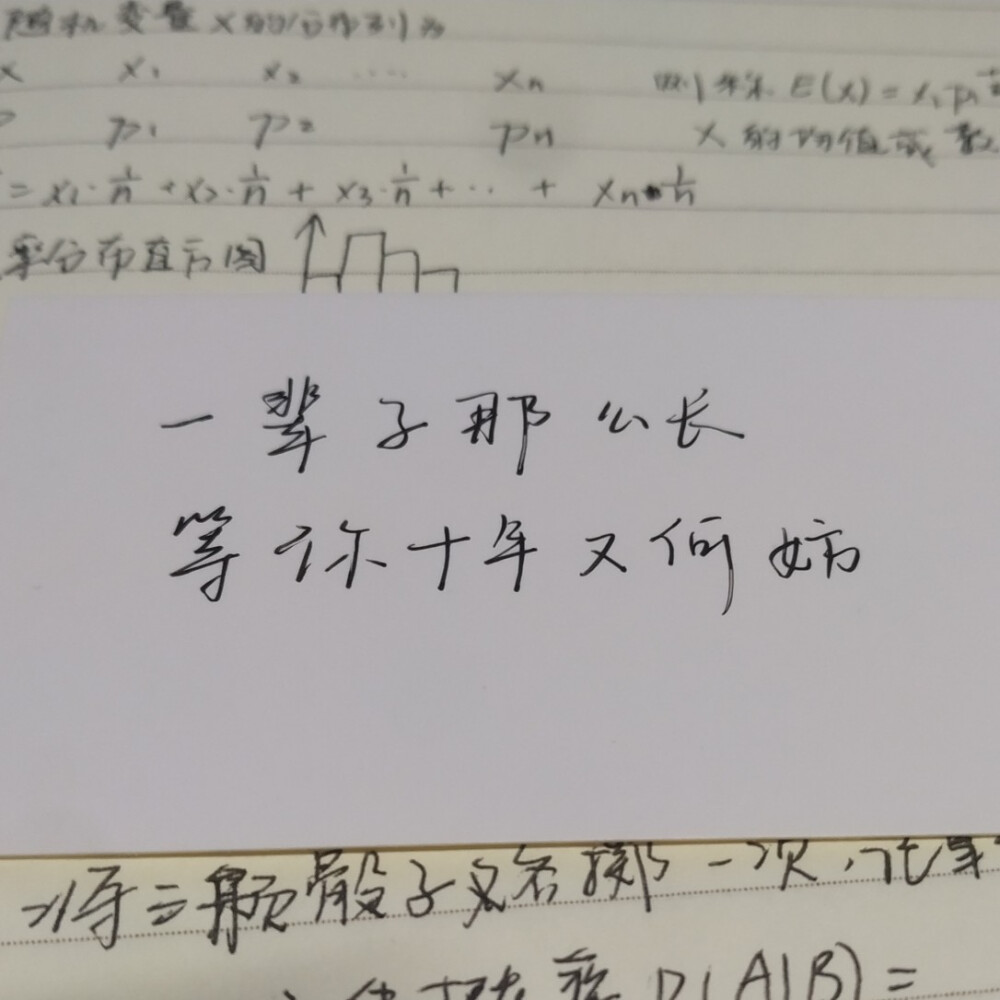 随机变量X的分布列为
X x₁ x₂ ···· xₙ 则称 E(X)=x₁p₁+
P p₁ p₂ pₙ X的均值或数
=x₁·1/n+x₂·1/n+x₃·1/n+··+xₙ·1/n
率分布直方图
一辈子那么长
等你十年又何妨
将三颗骰子各掷一次,记事
概率P(A|B)=